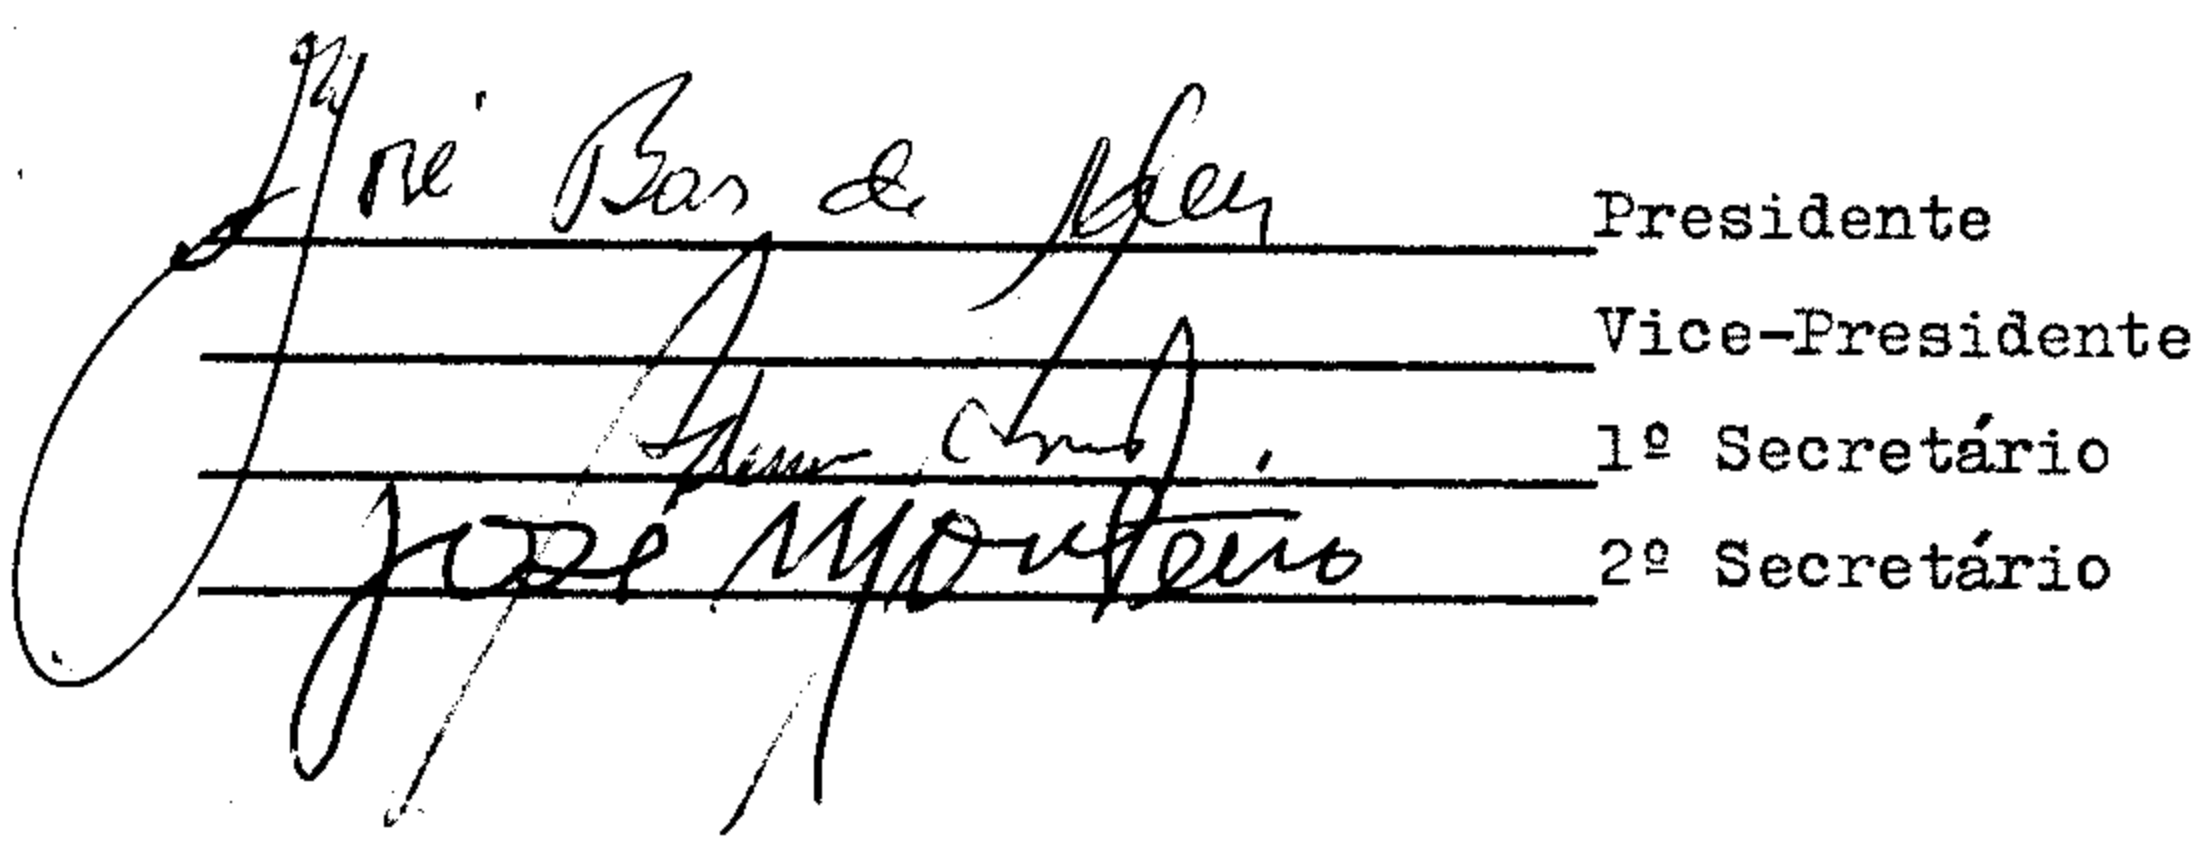 José de Presidente
Vice-Presidente
1º Secretário
José Monteiro 2º Secretário